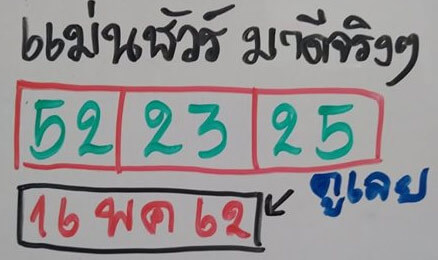 แม่นชัวร์ มาดีจริงๆ
52 23 25
16 พค 62
ดูเลย